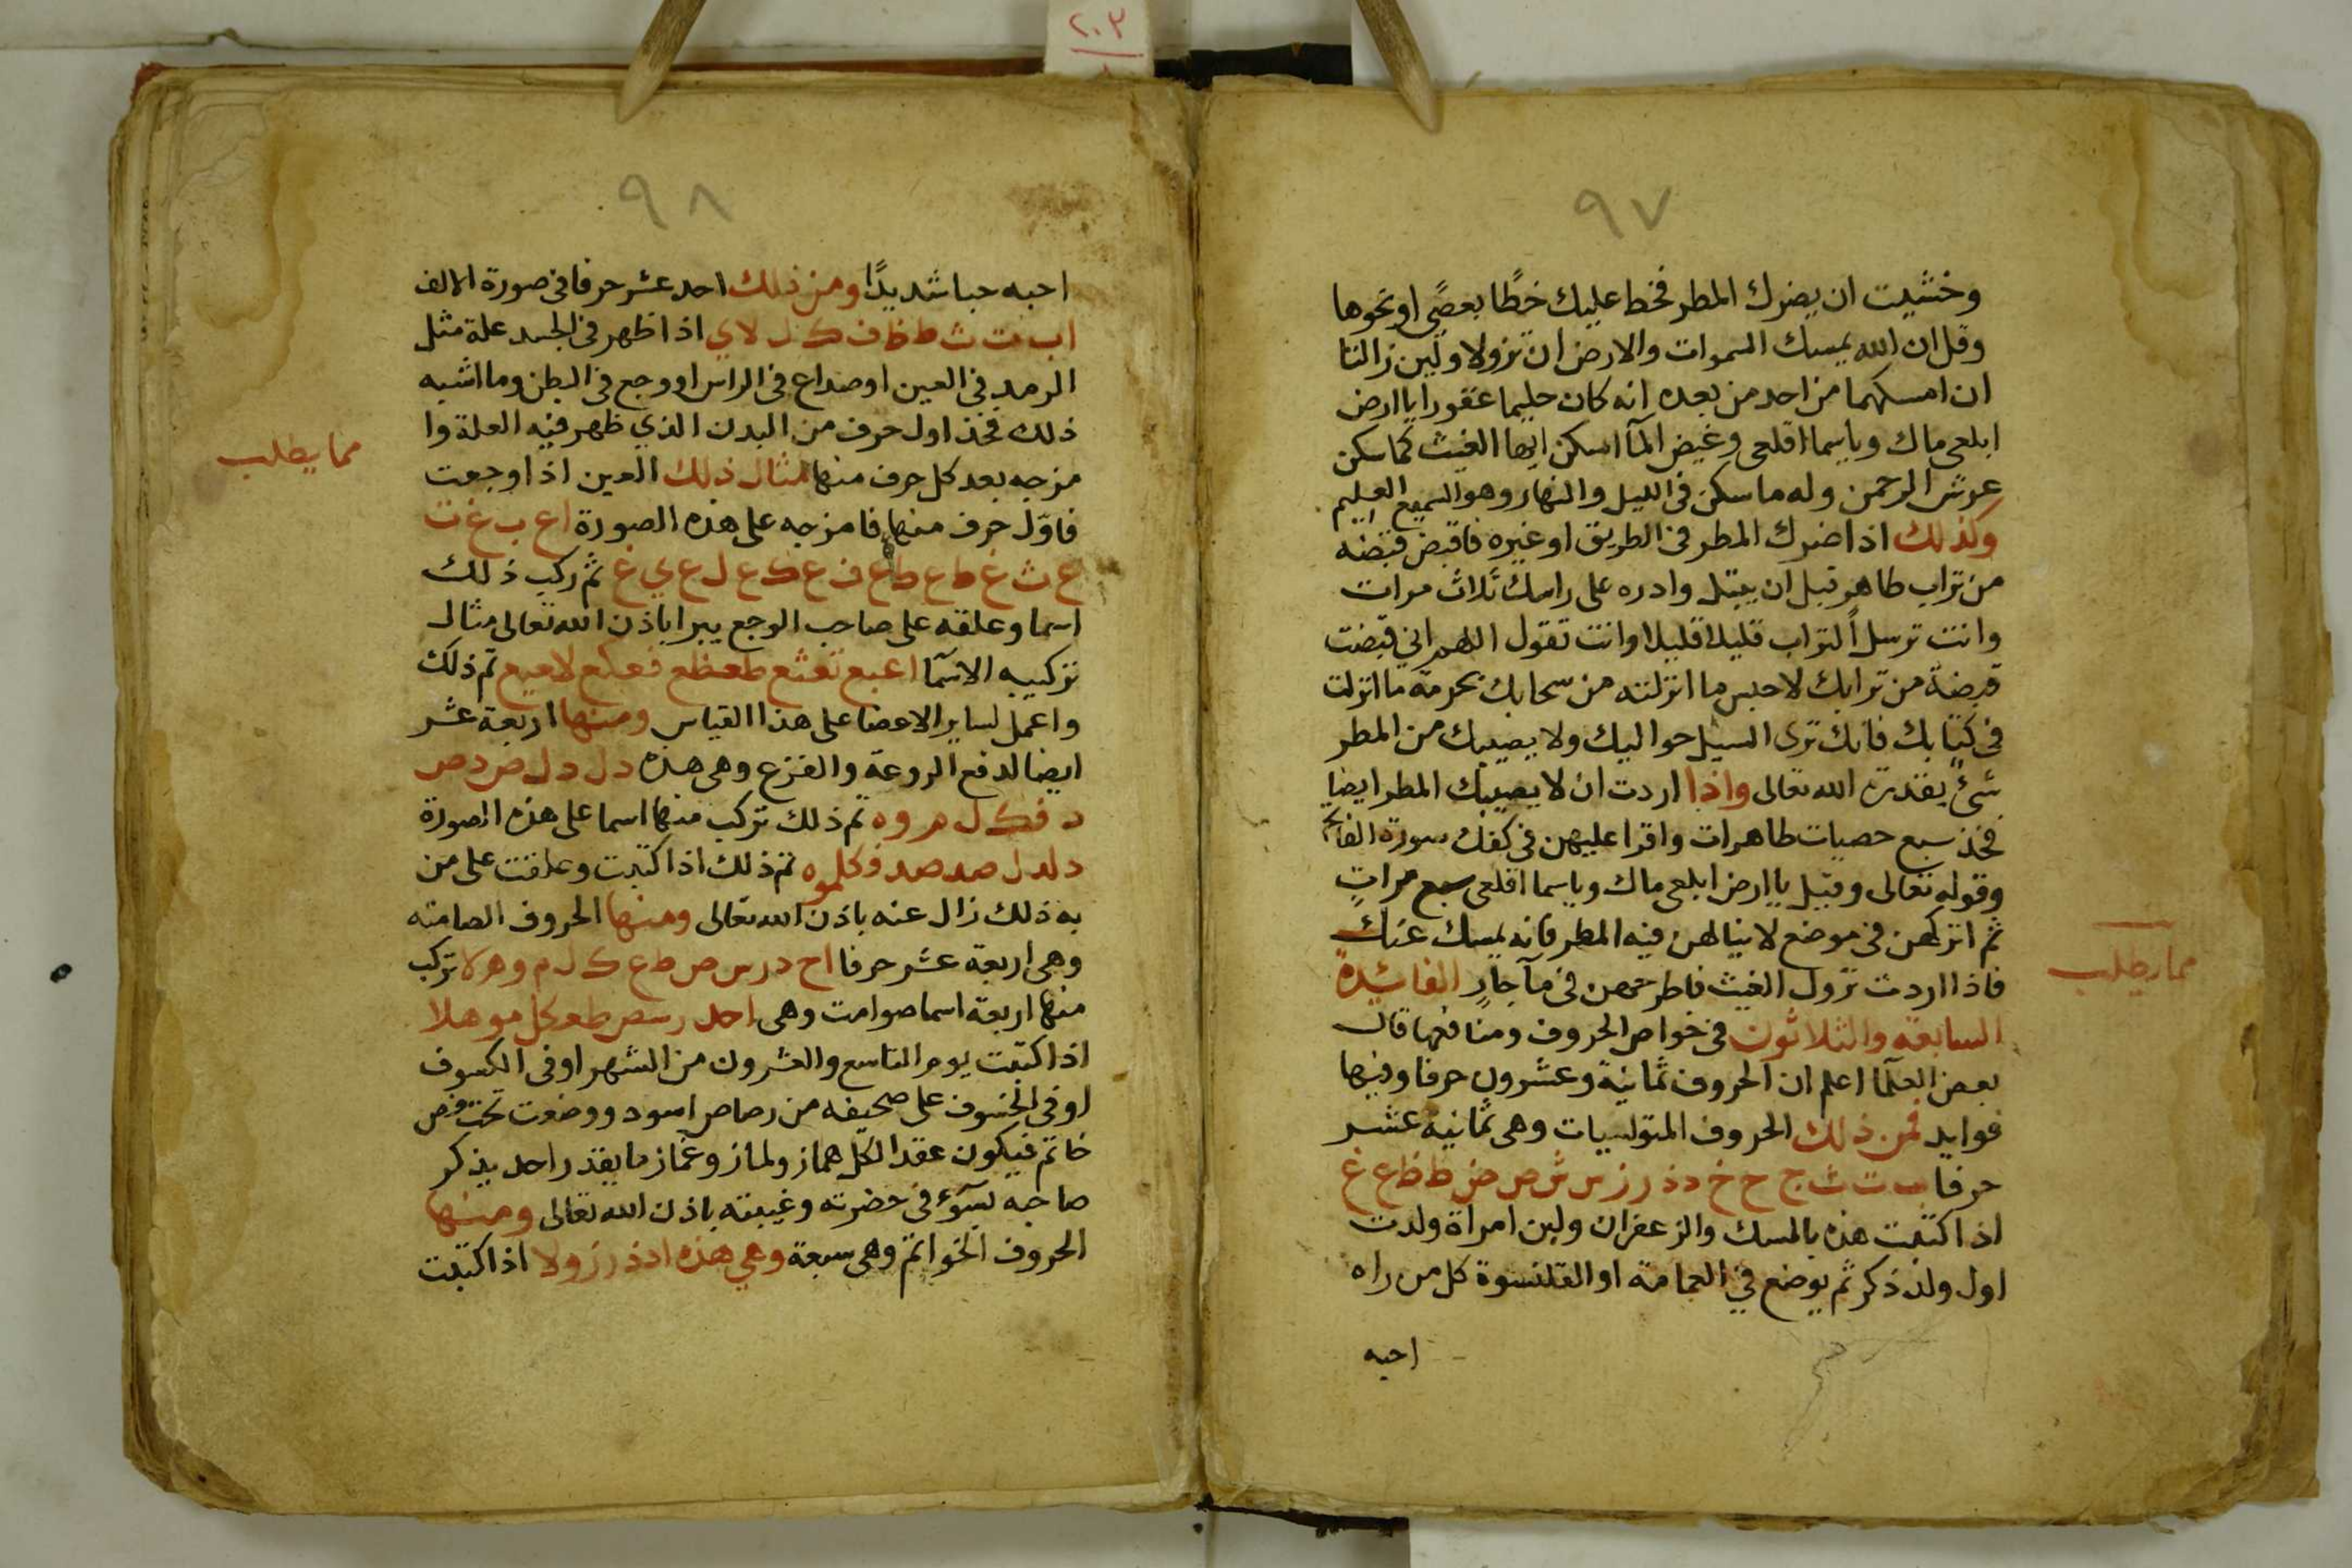 ٢٠٣
٩٧
وخشيت ان يضرك المطر فخط عليك خطًا بعصًى او نحوها
وقل ان الله يمسك السموات والارض ان تزولا ولين زالتا
ان امسكهما من احد من بعده انه كان حليما غفورا يا ارض
ابلعى ماك وياسما اقلعى وغيض المآ اسكن ايها الغيث كما سكن
عرش الرحمن وله ما سكن فى الليل والنهار وهو السميع العليم
وكذلك اذا ضرك المطر فى الطريق او غيره فاقبض قبضه
من تراب طاهر قبل ان يبتل وادره على راسك ثلاث مرات
وانت ترسل التراب قليلا قليلا وانت تقول اللهم اني قبضت
قبضة من ترابك لاحبس ما انزلته من سحابك بحرمة ما انزلت
فى كتابك فانك ترى السيل حواليك ولا يصيبك من المطر
شئ بقدرة الله تعالى واذا اردت ان لا يصيبك المطر ايضا
فخذ سبع حصيات طاهرات واقرا عليهن فى كفك سورة الفاتحه
وقوله تعالى وقيل يا ارض ابلعى ماك وياسما اقلعى سبع مرات
ثم اتركهن فى موضع لا ينالهن فيه المطر فانه يمسك عنك
فاذا اردت نزول الغيث فاطرحهن فى مآ جارٍ الفائدة
مما يطلب
السابعة والثلاثون فى خواص الحروف ومنافعها قال
بعض العلما اعلم ان الحروف ثمانية وعشرون حرفا وفيها
فوايد فمن ذلك الحروف المتوليات وهى ثمانية عشر
حرفا ب ت ث ج ح خ د ذ ر ز س ش ص ض ط ظ ع غ
اذا كتبت هذه بالمسك والزعفران ولبن امراة ولدت
اول ولد ذكر ثم يوضع في العمامة او القلنسوة كل من راه
احبه
٩٨
احبه حبا شديدًا ومن ذلك احد عشر حرفا فى صورة الالف
ا ب ت ث ط ظ ف ك ل لا ي اذا ظهر فى الجسد علة مثل
الرمد فى العين او صداع فى الراس او وجع فى البطن وما اشبه
ذلك فخذ اول حرف من البدن الذي ظهر فيه العلة وا
مما يطلب
مزجه بعد كل حرف منها مثال ذلك العين اذا وجعت
فاوّل حرف منها ع فامزجه على هذه الصورة ا ع ب ع ت
ع ث ع ط ع ظ ع ف ع ك ع ل ع ي ع ثم ركب ذلك
اسما وعلقه على صاحب الوجع يبرا باذن الله تعالى مثال
تركيبه الاسمآ اعبع تعثع طعظع فعكع لاعيع تم ذلك
واعمل لساير الاعضا على هذا القياس ومنها اربعة عشر
ايضا لدفع الروعة والفزع وهى هذه د ل د ل ص د ص
د ف ك ل م و ه تم ذلك تركب منها اسما على هذه الصورة
دلدل صد صد فكلموه تم ذلك اذا كتبت وعلقت على من
به ذلك زال عنه باذن الله تعالى ومنها الحروف الصامته
وهى اربعة عشر حرفا ا ح د ر س ص ط ع ك ل م و ه لا تركب
منها اربعة اسما صوامت وهى احد رسص طعكل موهلا
اذا كتبت يوم التاسع والعشرون من الشهر او فى الكسوف
او فى الخسوف على صحيفه من رصاص اسود ووضعت تحت فص
خاتم فيكون عقدا لكل هماز ولماز وغماز ما يقدر احد يذكر
صاحبه بسوء فى حضرته وغيبته باذن الله تعالى ومنها
الحروف الخواتم وهى سبعة وهي هذه ا د ذ ر ز و لا اذا كتبت